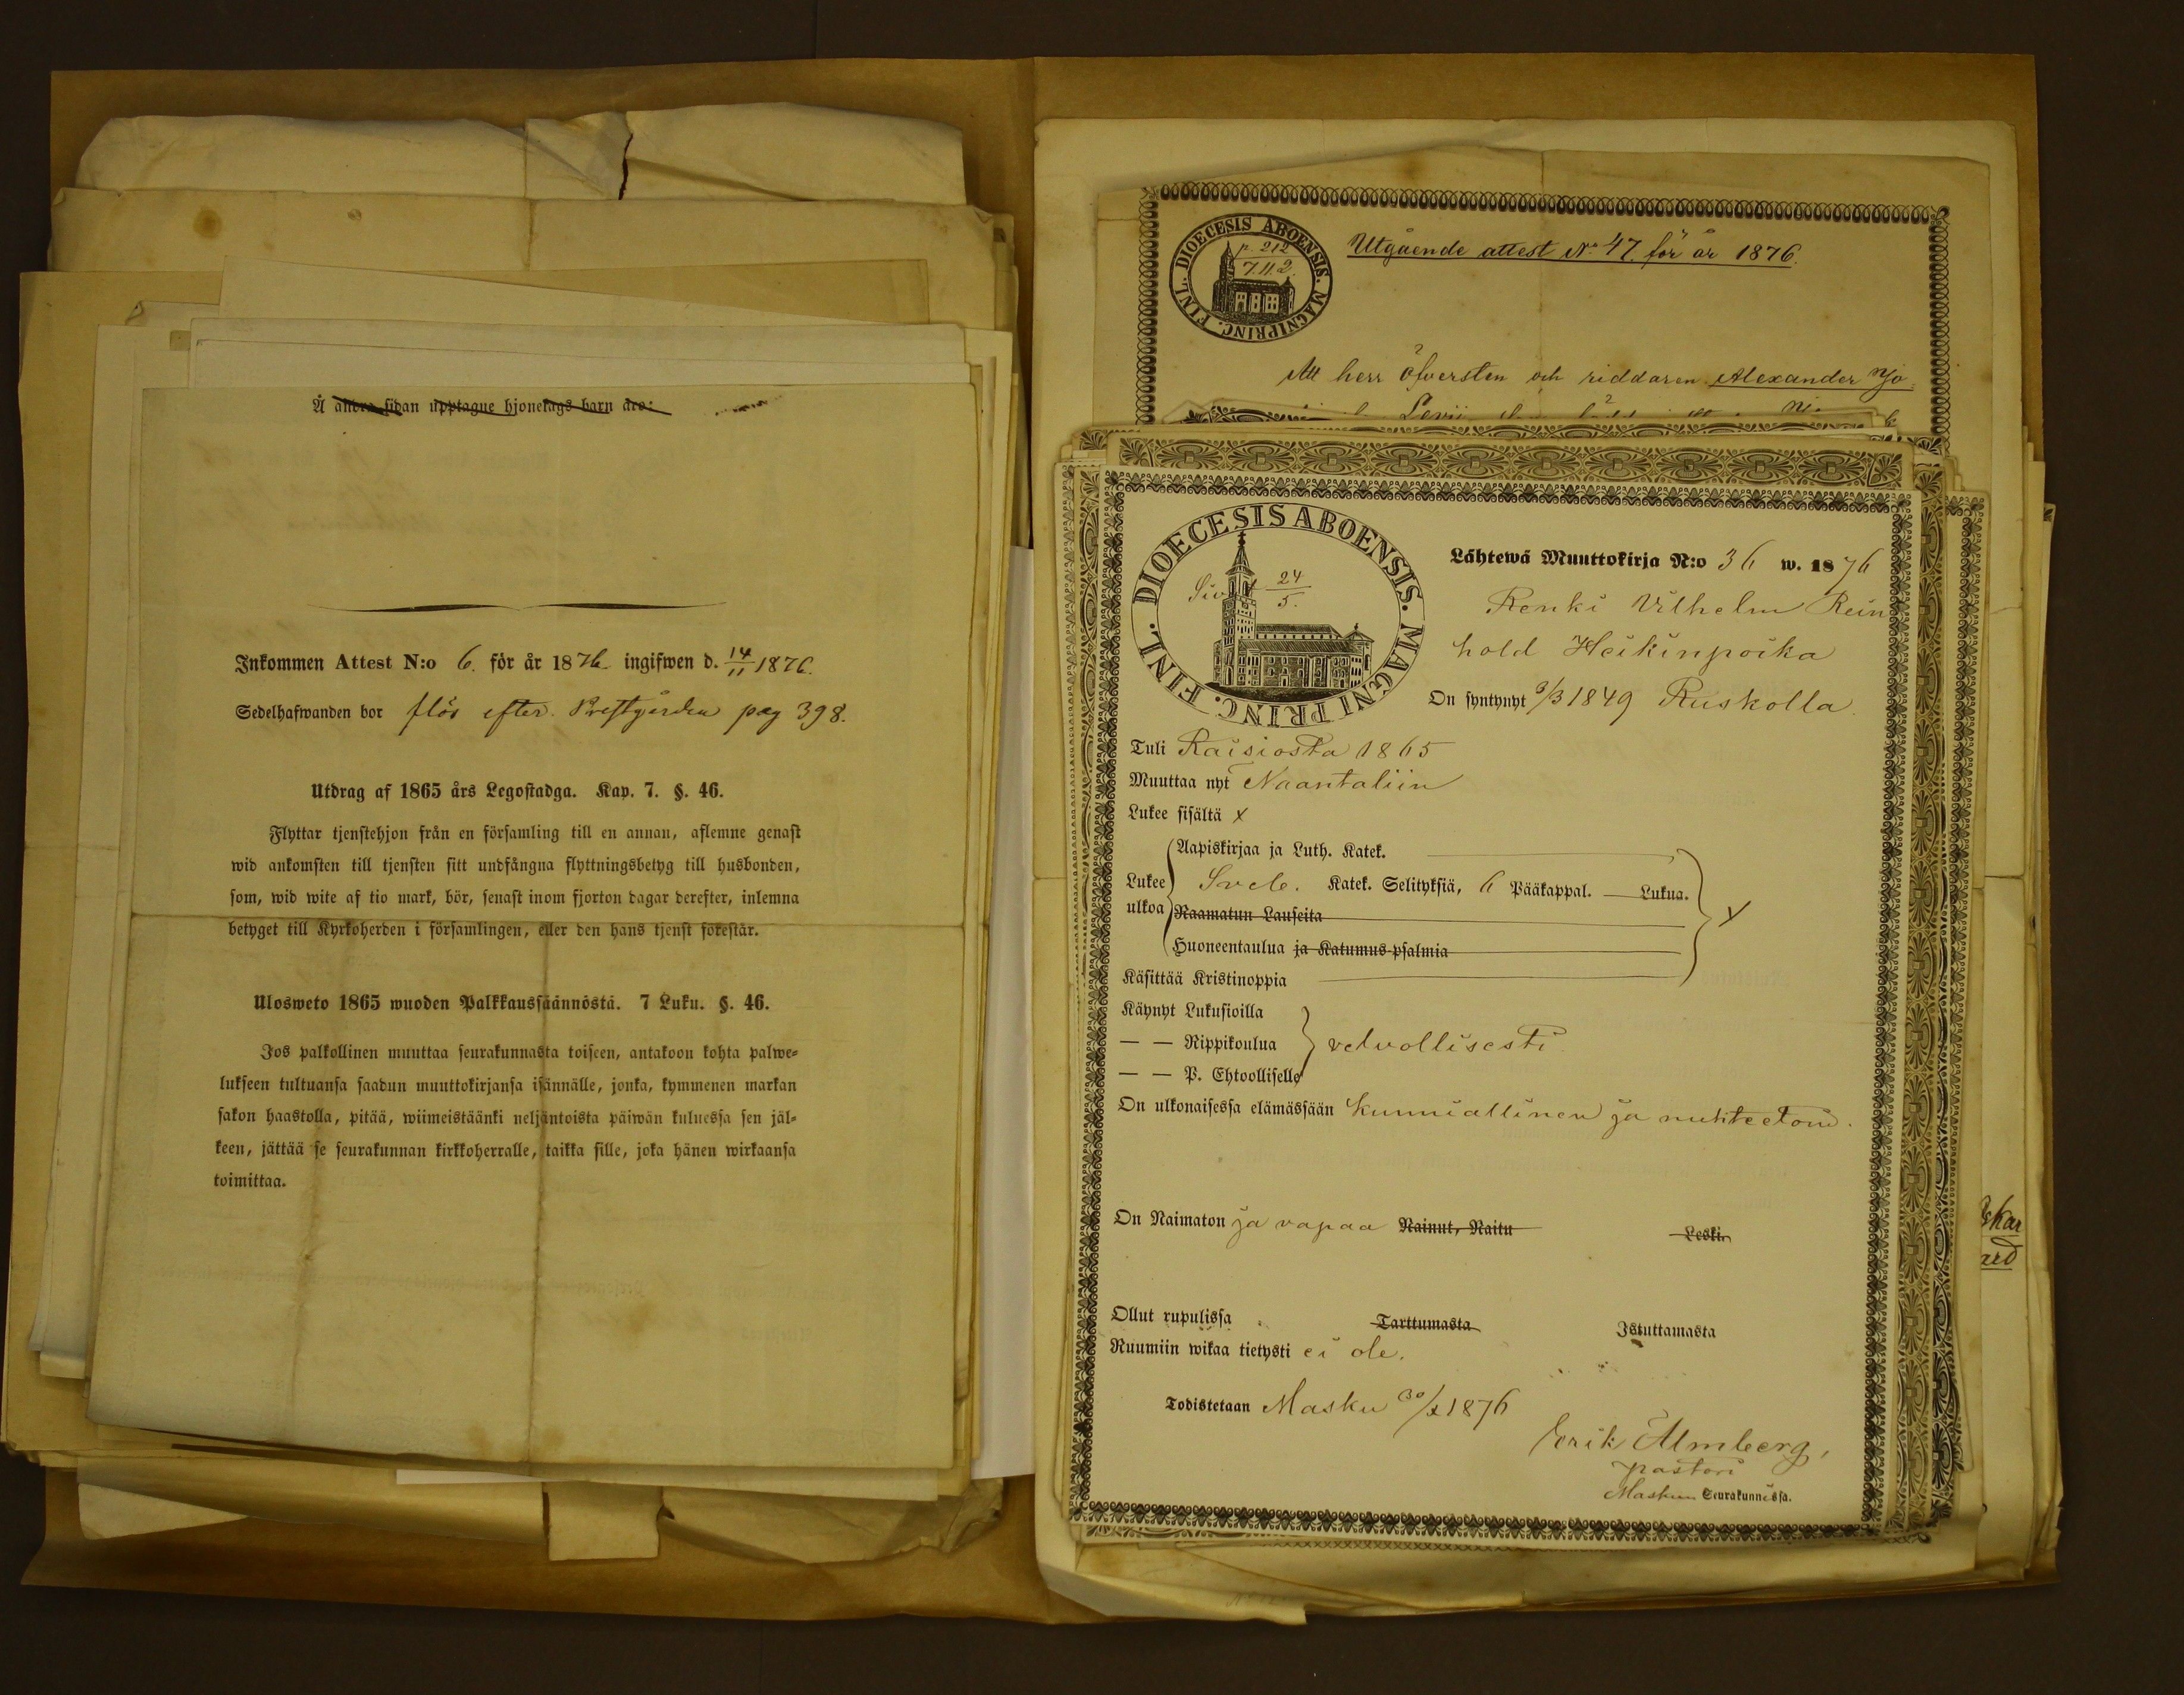 Å andra sidan upptagne hjonelags barn äro:
Inkommen Attest N:o 6. för år 1876. ingifwen d. 14/11 1876.
Sedelhafwanden bor flös efter. Prestgården pag 398.
Utdrag af 1865 års Legostadga. Kap. 7. §. 46.
Flyttar tjenstehjon från en församling till en annan, aflemne genast
wid ankomsten till tjensten sitt undfångna flyttningsbetyg till husbonden,
som, wid wite af tio mark, bör, senast inom fjorton dagar derefter, inlemna
betyget till Kyrkoherden i församlingen, eller den hans tjenst förestår.
Ulosweto 1865 wuoden Palkkaussäännöstä. 7 Luku. §. 46.
Jos palkollinen muuttaa seurakunnasta toiseen, antakoon kohta palwe=
lukseen tultuansa saadun muuttokirjansa isännälle, jonka, kymmenen markan
sakon haastolla, pitää, wiimeistäänki neljäntoista päiwän kuluessa sen jäl=
keen, jättää se seurakunnan kirkkoherralle, taikka sille, joka hänen wirkaansa
toimittaa.
DIOECESIS ABOENSIS. MAGNI PRINC. FINL.
p. 212
7.112.
Utgående attest No 47. för år 1876.
Att herr öfversten och riddaren Alexander
DIOECESIS ABOENSIS. MAGNI PRINC. FINL.
Siv 24/5.
Lähtewä Muuttokirja N:o 36 w. 1876
Renki Vilhelm Rein
hold Heikinpoika
On syntynyt 9/3 1849 Ruskolla.
Tuli Raisiosta 1865
Muuttaa nyt Naantaliin
Lukee sisältä x
Aapiskirjaa ja Luth. Katek.
Lukee ulkoa Sveb. Katek. Selityksiä, 6 Pääkappal. — Lukua.
Raamatun Lauseita
x
Huoneentaulua ja Katumus-psalmia
Käsittää Kristinoppia
Käynyt Lukusioilla
— — Rippikoulua velvollisesti
— — P. Ehtoollisella
On ulkonaisessa elämässään kunniallinen ja nuhteetoin.
On Naimaton ja vapaa Nainut, Naitu Leski.
Ollut rupulissa Tarttumasta Istuttamasta
Ruumiin wikaa tietysti ei ole.
Todistetaan Masku 30/x 1876
Erik Almberg,
pastori
Maskun Seurakunnissa.